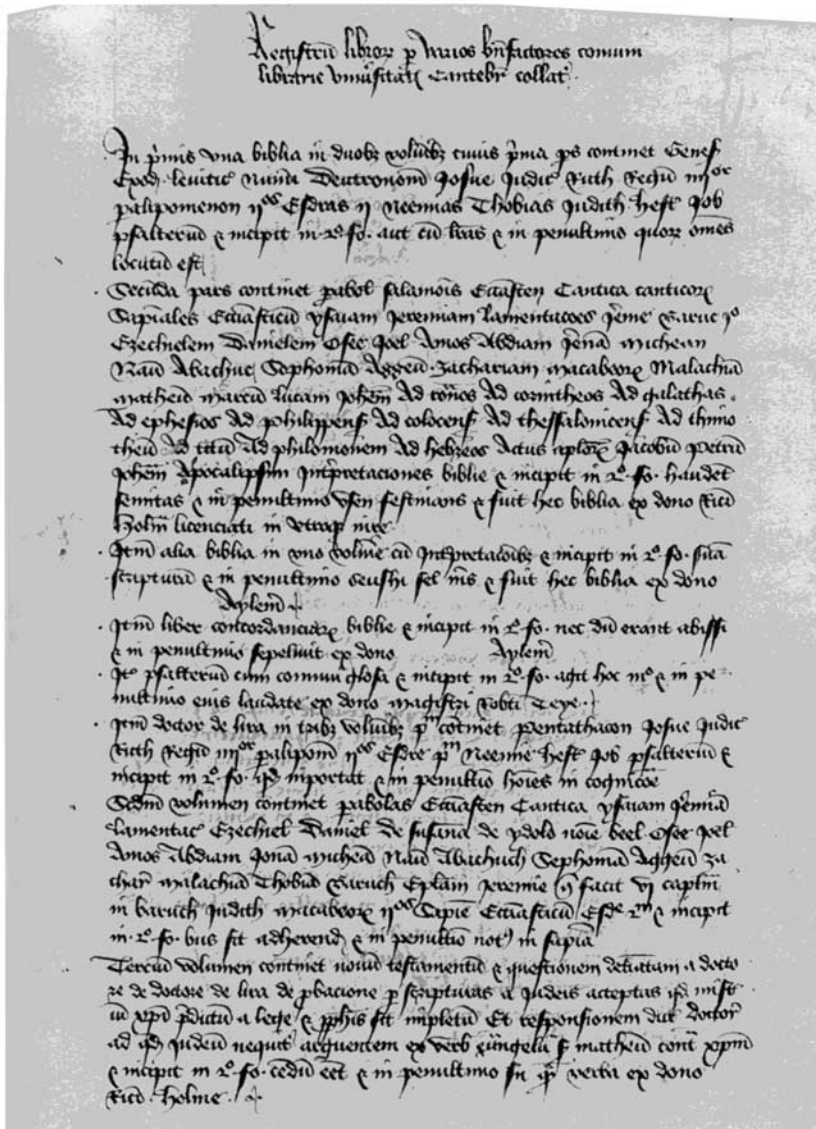 Registrū libror p varios bnfactores comum
librarie vniūsitatis Cantebr collat
In p'mis vna biblia in duobz volūibz cuius p'ma ps continet Genes
Exod leuitic Nūm Deutronom Josue Judic Ruth Regū iiij
palipomenon ij Esdras ij Neemias Thobias Judith hest Job
psalteriū & incipit in 2o fo aut cū & in penultimo quor omēs
locutio est
Secūda pars continet pabol salamōis Ecclāsten Cantica canticor
Sapiales Ecclāsticū ysaiam Jeremiam lamentacōes Jeme Baruc
Ezechielem Danielem Osee Joel Amos Abdiam Jonā Michean
Naū Abachuc Sophoniā Aggeū zachariam macabeor Malachiā
matheū marcū lucam Johem Ad romos Ad corintheos Ad galathas
Ad ephesios Ad philippens Ad colocens Ad thessalonicens Ad thimo
theū Ad titū Ad philomonem Ad hebreos Actus aplor Jacobū Petrū
Johem Apocalipsim Intpretaciones biblie & incipit in 2o fo
semitas & in penultimo festinans & fuit hec biblia ex dono Ricī
Holm licenciati in vtroq iure
Itm alia biblia in vno volūie cū Intpretacōibz & incipit in 2o fo suā
scripturā & in penultimo & fuit hec biblia ex dono
Aylem
Itm liber concordanciar biblie & incipit in 2o fo nec dū erant abissi
& in penultimo sepeliuit ex dono Aylem
It psalteriū cum comuni glosa & incipit in 2o fo agit hoc mo & in pe
nultimo eius laudate ex dono magistri Robti Teye
Itm doctor de lira in tribz volūibz pm cōtinet Pentathacon Josue Judic
Ruth Regū iiij palipom ij Esdre pm Neemie hest Job psalteriū &
incipit in 2o fo qd inportat & in penultīo hoīes in cognicōe
Scdm volumen continet pabolas Ecclāsten Cantica ysaiam Jeremiā
lamentac Ezechiel Daniel de susāna de ydolo noīe beel Osee Joel
Amos Abdiam Jonā micheā Naū Abachuch Sephoniā Aggeū za
char malachiā Thobiā Baruch Eplām Jeremie q facit vj caplm
in baruch Judith macabeor ij Sapie Ecclāsticū Esdre 2m & incipit
in 2o fo bus sit adherend & in penultīo not in sapiā
Terciū volumen continet nouū testamentū & questionem detiatam a docto
re de doctore de lira de pbacione p scripturas a Judeis acceptas qd mist
iū xpi p'dictū a lege & pphis sit impletū Et responsionem dict doctor
ad qd Judeū nequit arguentem ex verb eūngelii s matheū contr xpm
& incipit in 2o fo cēdū eēt & in penultimo verba ex dono
Ricī holme